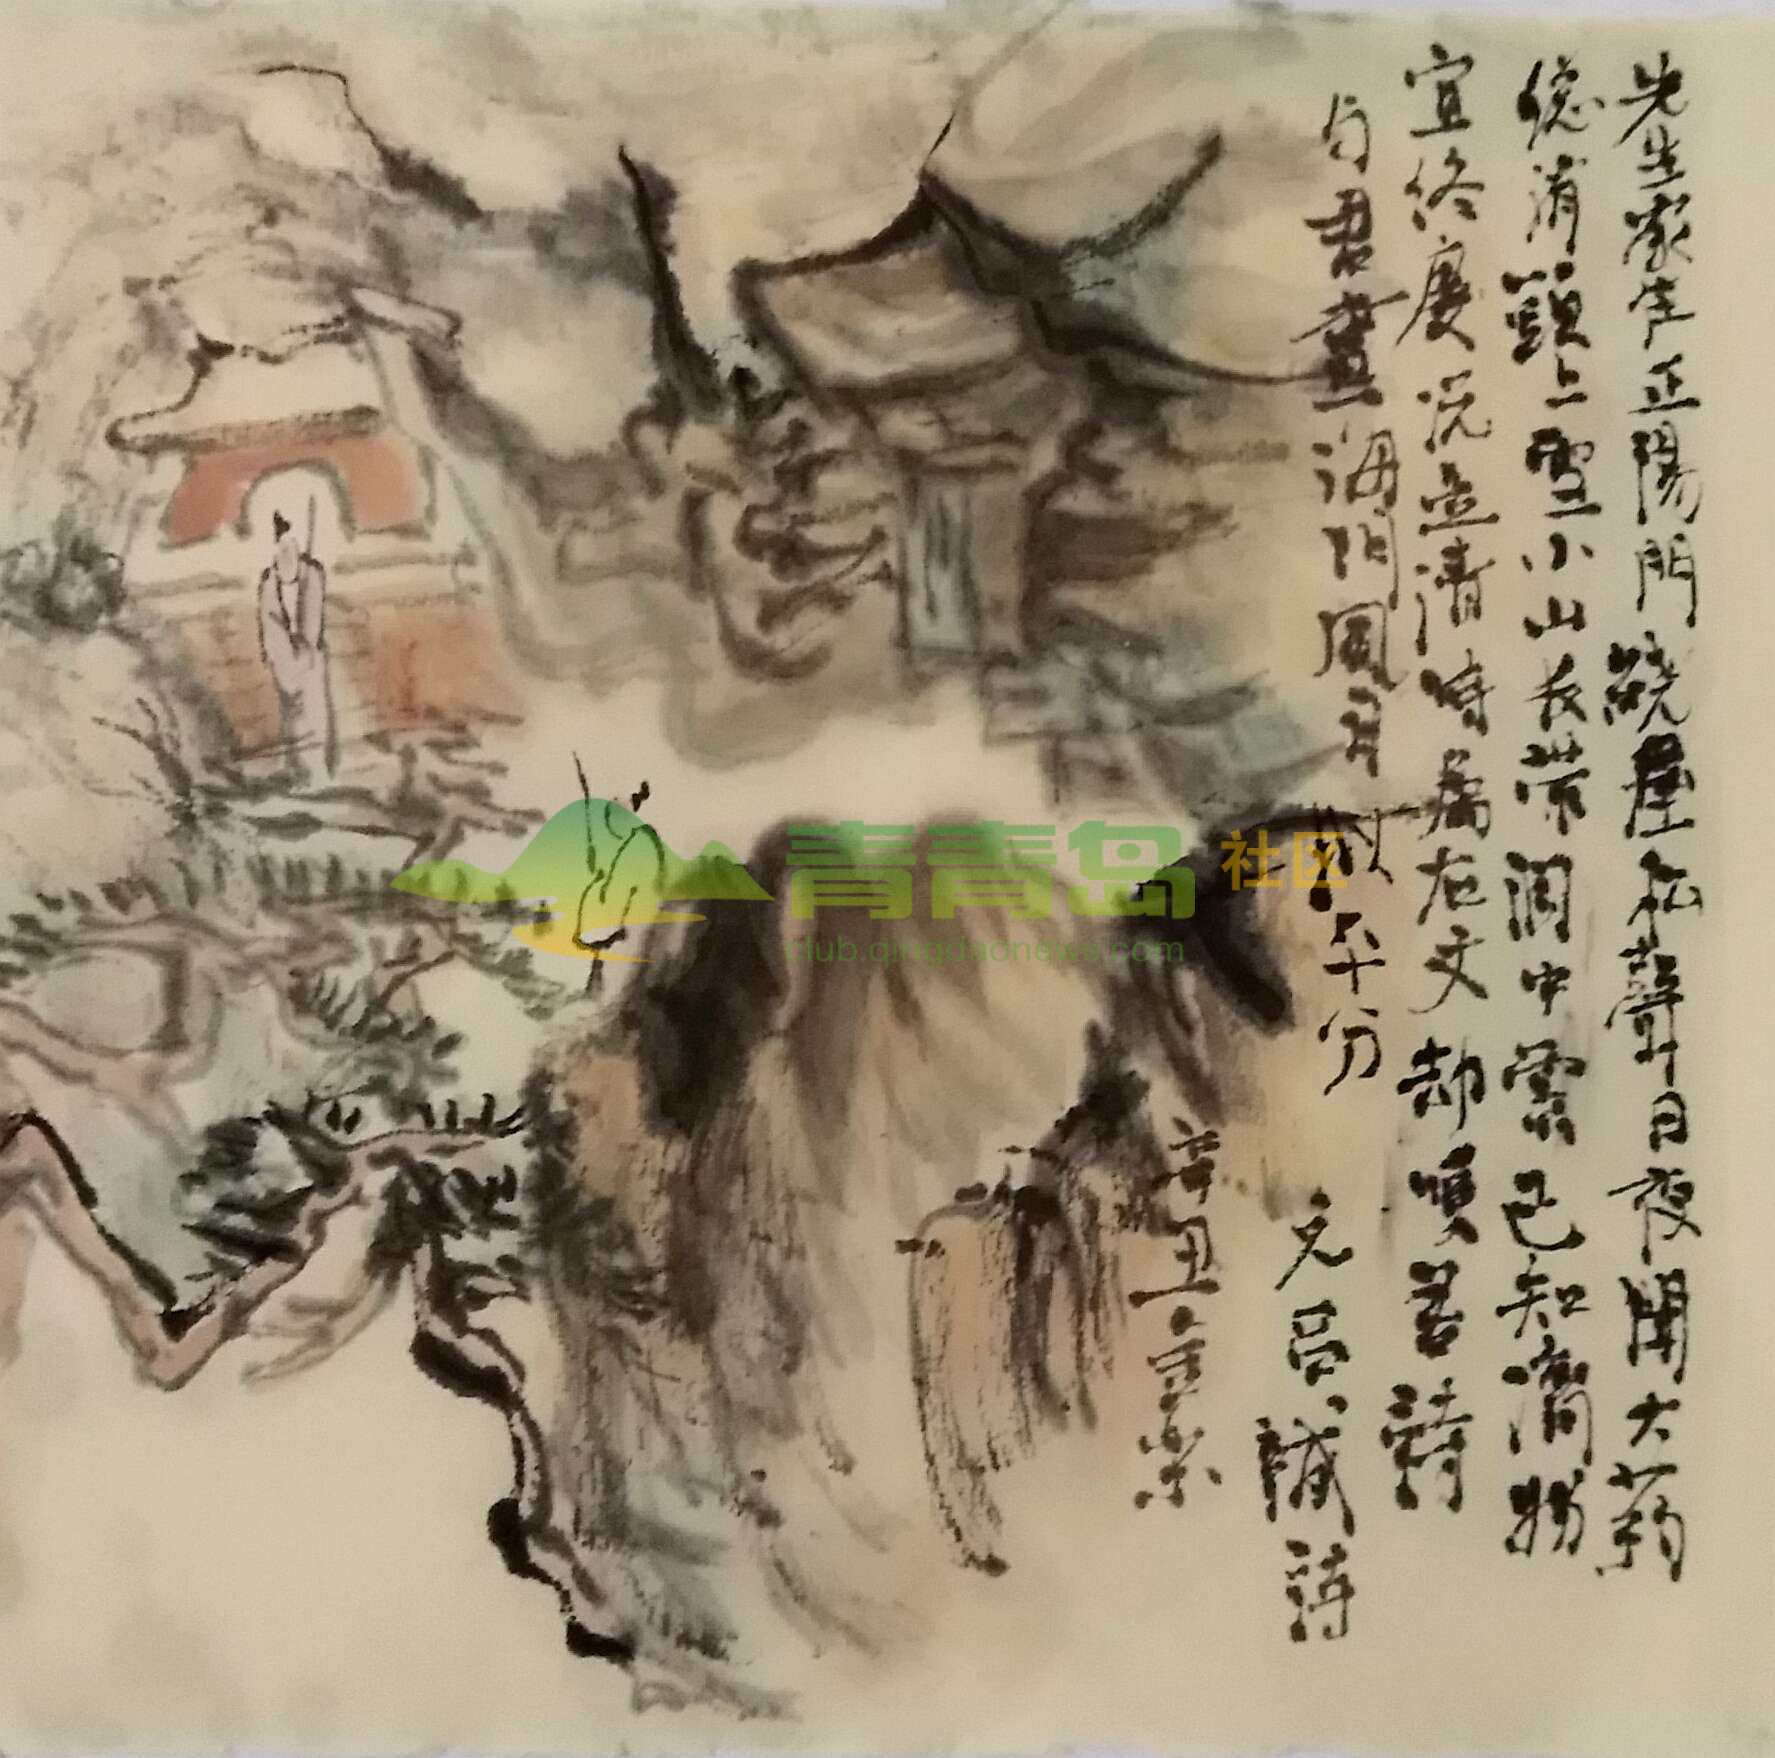 先生家住正陽門繞屋松聲日夜聞大藥
總消頭上雪小山長帶洞中雲已知濟物
宜終慶況並清時属右文却嘆君詩
与君畫海門風月平分
元呂誠詩
辛丑
青青岛社区
club.qingdaonews.com